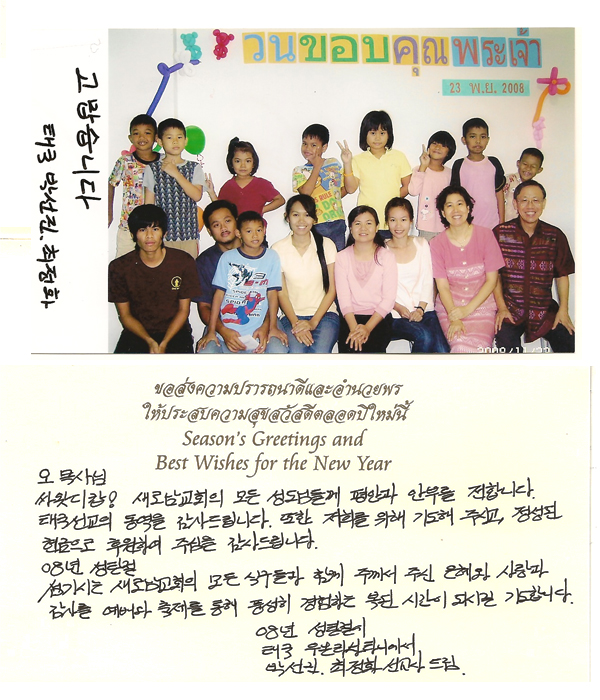 วันขอบคุณพระเจ้า
23 พ.ย. 2008
고맙습니다
태국 박선진. 최정화
ขอส่งความปรารถนาดีและอำนวยพร
ให้ประสบความสุขสวัสดีตลอดปีใหม่นี้
Season's Greetings and
Best Wishes for the New Year
오 목사님
싸왓디캅! 새로남교회의 모든 성도님들께 평안과 안부를 전합니다.
태국선교의 동역을 감사드립니다. 또한 저희를 위해 기도해 주시고, 정성된
헌금으로 후원하여 주심을 감사드립니다.
08년 성탄절
섬기시는 새로남교회의 모든 식구들과 함께 주께서 주신 은혜와 사랑과
감사를 예배와 축제를 통해 풍성히 경험하는 복된 시간이 되시길 기도합니다.
08년 성탄절에
태국 에서
박선진. 최정화 선교사 드림.